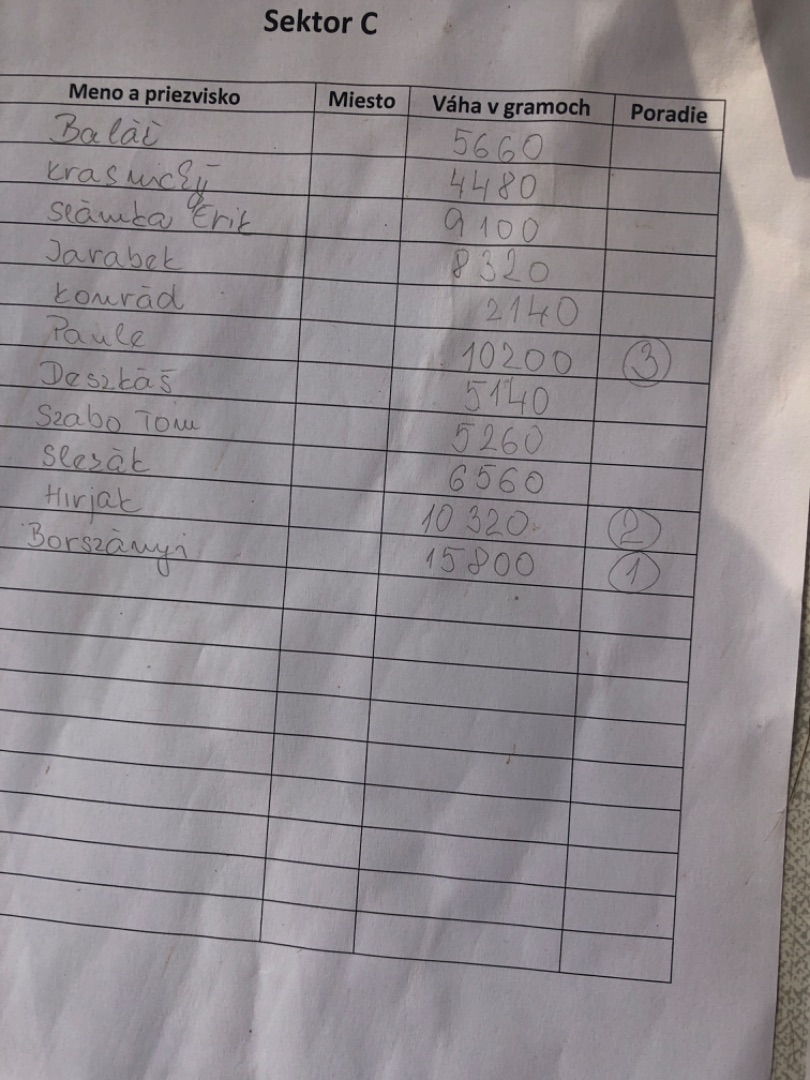 Sektor C
Meno a priezvisko Miesto Váha v gramoch Poradie
Baláž 5660
4480
Slámka Erik 9100
Jarabek 8320
Konrád 2140
Paule 10200 3
Deszkáš 5140
Szabo Tom 5260
Slezák 6560
Hirjak 10320 2
Borszányi 15800 1